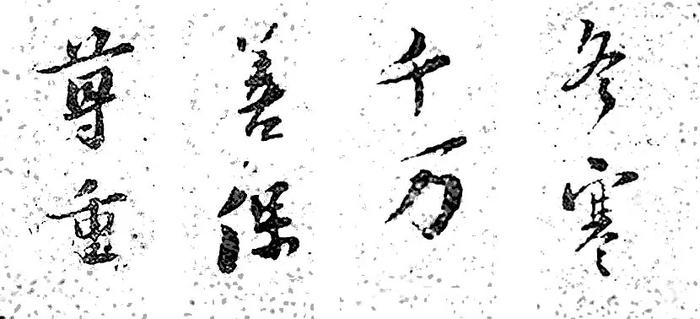 冬寒
千万
善保
尊重